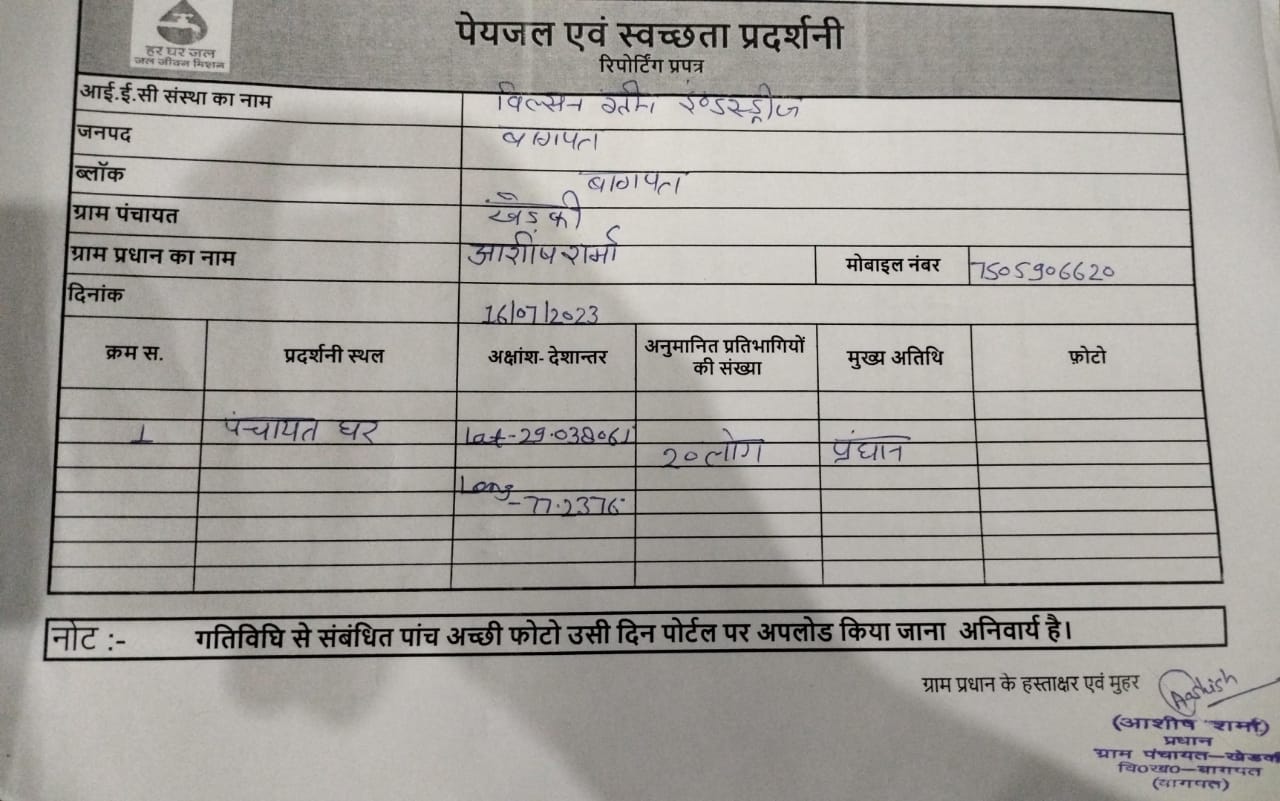 हर घर जल
जल जीवन मिशन
पेयजल एवं स्वच्छता प्रदर्शनी
रिपोर्टिंग प्रपत्र
आई.ई.सी संस्था का नाम विल्सन इण्डस्ट्रीज
जनपद बागपत
ब्लॉक बागपत
ग्राम पंचायत खेडकी
ग्राम प्रधान का नाम आशीष शर्मा मोबाइल नंबर 7505906620
दिनांक 16/07/2023
क्रम स. प्रदर्शनी स्थल अक्षांश- देशान्तर अनुमानित प्रतिभागियों की संख्या मुख्य अतिथि फ़ोटो
1 पंचायत घर Lat-29.038061 20 लोग प्रधान
Long-77.2376
नोट :- गतिविधि से संबंधित पांच अच्छी फोटो उसी दिन पोर्टल पर अपलोड किया जाना अनिवार्य है।
ग्राम प्रधान के हस्ताक्षर एवं मुहर Aashish
(आशीष शर्मा)
प्रधान
ग्राम पंचायत-खेडकी
वि०ख०-बागपत
(बागपत)